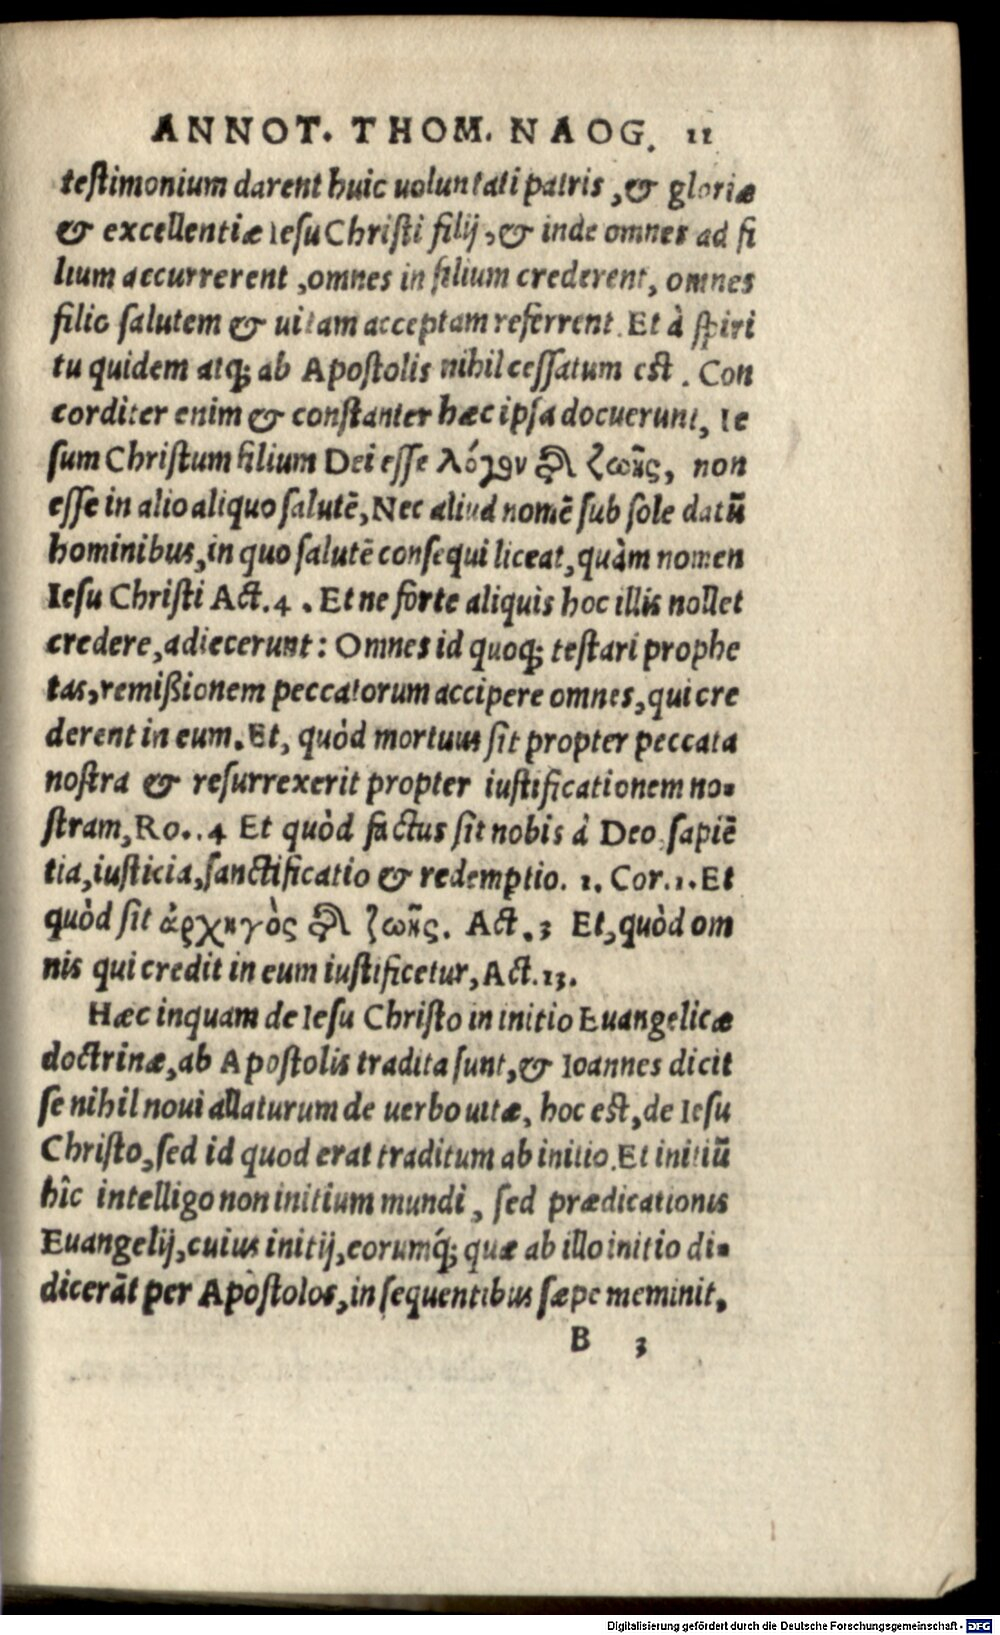 ANNOT. THOM. NAOG. 11
testimonium darent huic uoluntati patris, & gloriæ
& excellentiæ Iesu Christi filij, & inde omnes ad fi
lium accurrerent, omnes in filium crederent, omnes
filio salutem & uitam acceptam referrent. Et à spiri
tu quidem atq; ab Apostolis nihil cessatum est. Con
corditer enim & constanter hæc ipsa docuerunt, Ie
sum Christum filium Dei esse λόγον τῆς ζωῆς, non
esse in alio aliquo salutē, Nec aliud nomē sub sole datū
hominibus, in quo salutē consequi liceat, quàm nomen
Iesu Christi Act. 4. Et ne forte aliquis hoc illis nollet
credere, adiecerunt: Omnes id quoq; testari prophe
tas, remißionem peccatorum accipere omnes, qui cre
derent in eum. Et, quòd mortuus sit propter peccata
nostra & resurrexerit propter iustificationem no-
stram, Ro.. 4 Et quòd factus sit nobis à Deo sapiē
tia, iusticia, sanctificatio & redemptio. 1. Cor. 1. Et
quòd sit ἀρχηγὸς τῆς ζωῆς. Act. 3 Et, quòd om
nis qui credit in eum iustificetur, Act. 13.
Hæc inquam de Iesu Christo in initio Euangelicæ
doctrinæ, ab Apostolis tradita sunt, & Ioannes dicit
se nihil noui allaturum de uerbo uitæ, hoc est, de Iesu
Christo, sed id quod erat traditum ab initio. Et initiū
hîc intelligo non initium mundi, sed prædicationis
Euangelij, cuius initij, eorumq́; quæ ab illo initio di-
dicerāt per Apostolos, in sequentibus sæpe meminit,
B 3
Digitalisierung gefördert durch die Deutsche Forschungsgemeinschaft - DFG